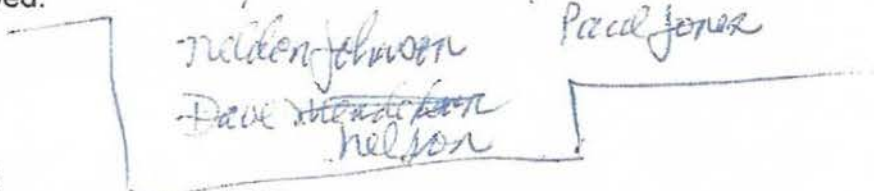 Nelden Johnson Paul Jones
Dave
Nelson